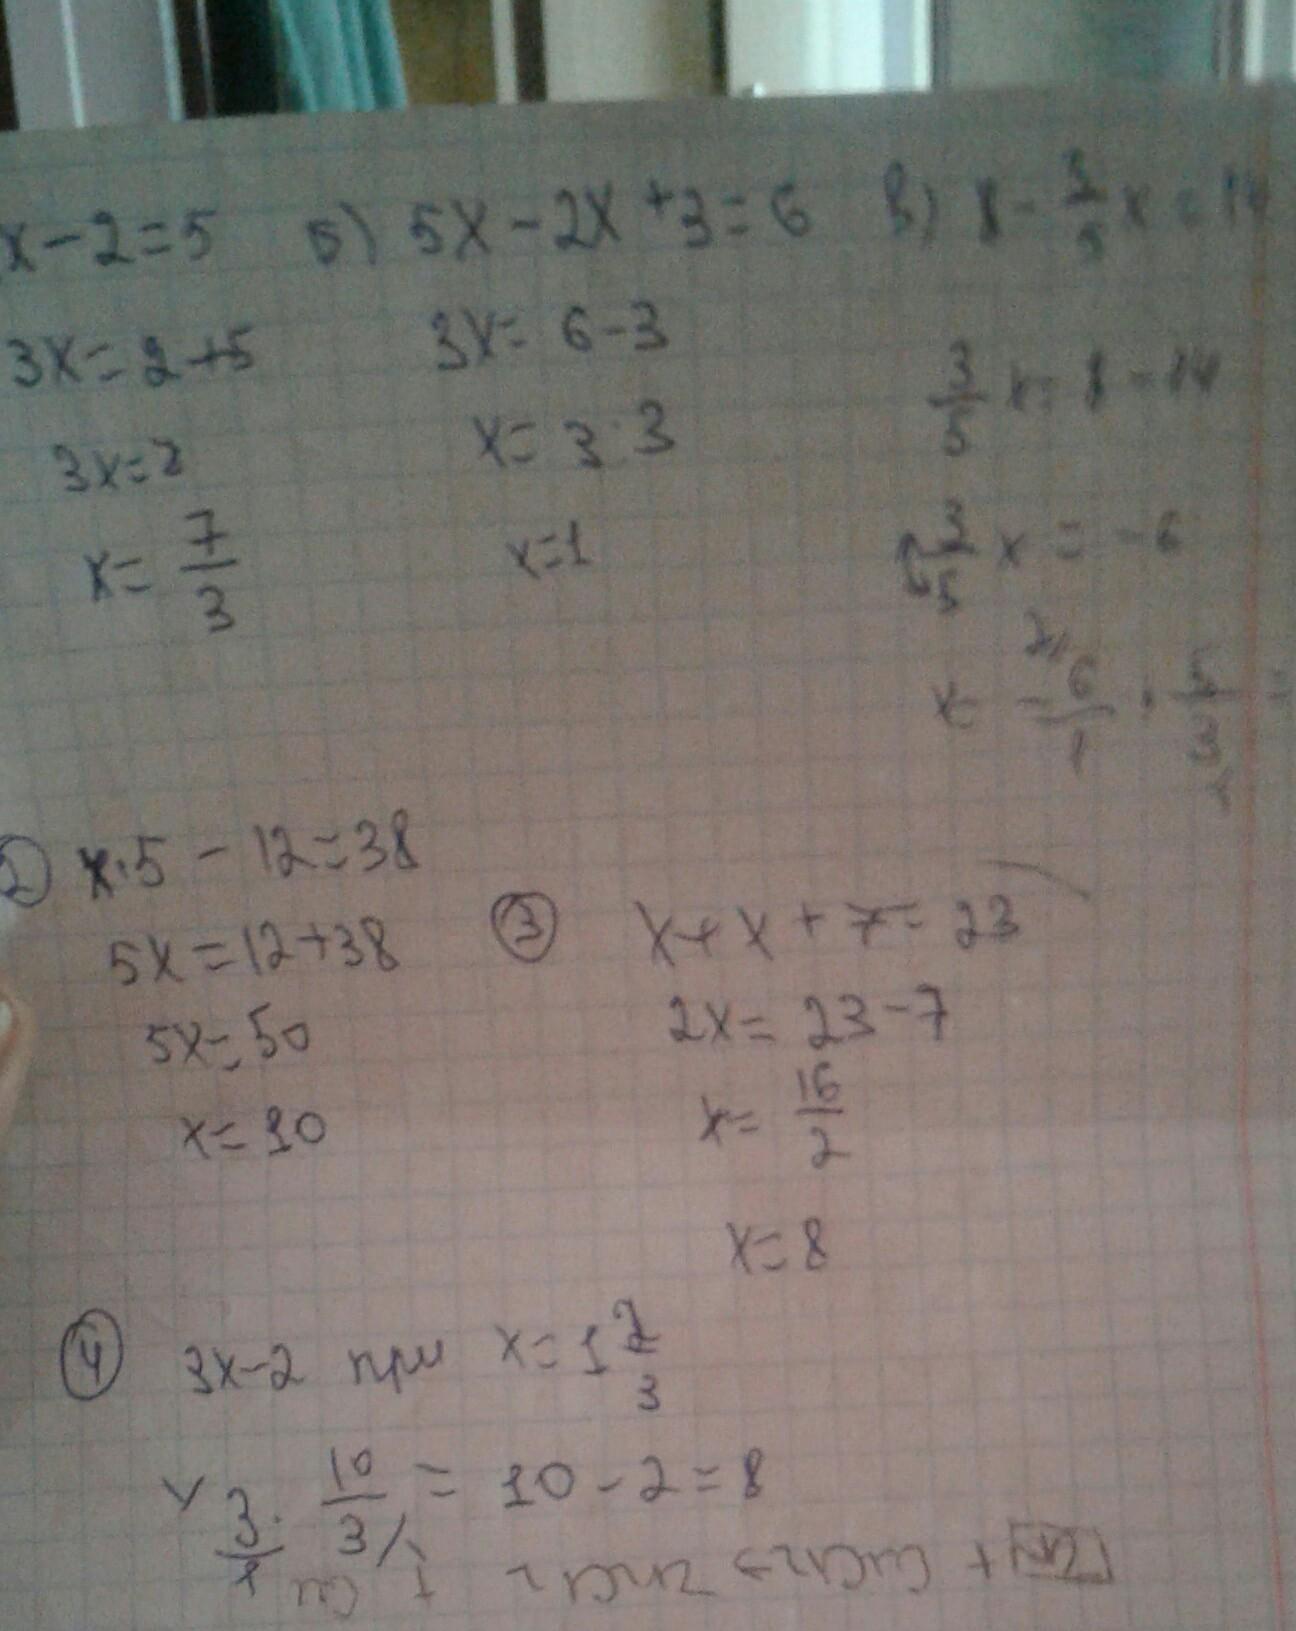 x-2=5 б) 5x-2x+3=6 в) 8-3/5x=14
3x=2+5 3x=6-3 3/5x=8-14
3x=7 x=3:3 3/5x=-6
x=7/3 x=1 x=-6/1·5/3=
2 x·5-12=38
5x=12+38 3 x+x+7=23
5x=50 2x=23-7
x=10 x=16/2
x=8
4 3x-2 при x=1 7/3
3/1·10/3=10-2=8
Zn + CuCl2 = ZnCl2 + Cu